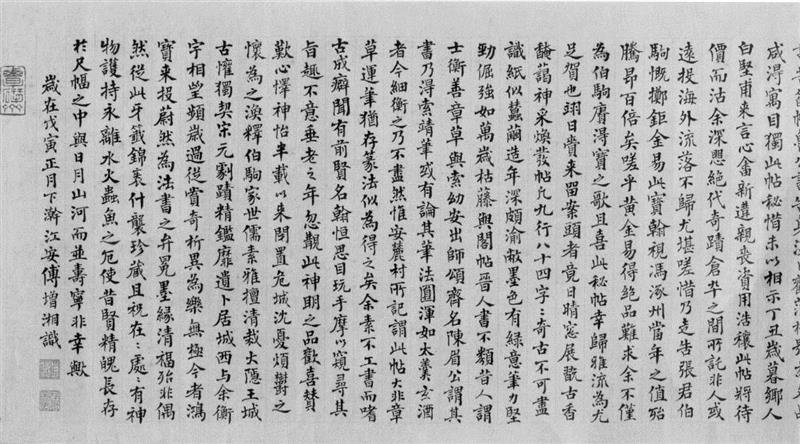 咸得寓目獨此帖秘惜未以相示丁丑歲暮鄉人
白堅甫來言心畬新遭親喪資用浩穰此帖將待
價而沽余深懼絕代奇蹟倉卒之間所託非人或
遠投海外流落不歸尤堪嗟惜乃走告張君伯
駒慨擲鉅金易此寶翰視馮涿州當年之值殆
騰昂百倍矣嗟乎黃金易得絕品難求余不僅
為伯駒賡得寶之歌且喜此秘帖幸歸雅流為尤
足賀也翊日賫來留案頭者竟日晴窗展翫古香
馣藹神采煥發帖凡九行八十四字〻奇古不可盡
識紙似蠶繭造年深頗渝敝墨色有綠意筆力堅
勁倔強如萬歲枯藤與閣帖晉人書不類昔人謂
士衡善章草與索幼安出師頌齊名陳眉公謂其
書乃得索靖筆或有論其筆法圓渾如太羹玄酒
者今細衡之乃不盡然惟安麓村所記謂此帖大非章
草運筆猶存篆法似為得之矣余素不工書而嗜
古成癖聞有前賢名翰恒思目玩手摩以窺尋其
旨趣不意垂老之年忽覯此神明之品歡喜贊
歎心懌神怡半載以來閉置危城沈憂煩鬱之
懷為之渙釋伯駒家世儒素雅擅清裁大隱王城
古懽獨契宋元劇蹟精鑑靡遺卜居城西与余衡
宇相望頻歲過從賞奇析異為樂無極今者鴻
寶來投蔚然為法書之弁冕墨緣清福殆非偶
然從此牙籤錦裹什襲珍藏且祝在〻處〻有神
物護持永離水火蟲魚之厄使昔賢精魄長存
於尺幅之中與日月山河而並壽寧非幸歟
歲在戊寅正月下澣江安傅增湘識